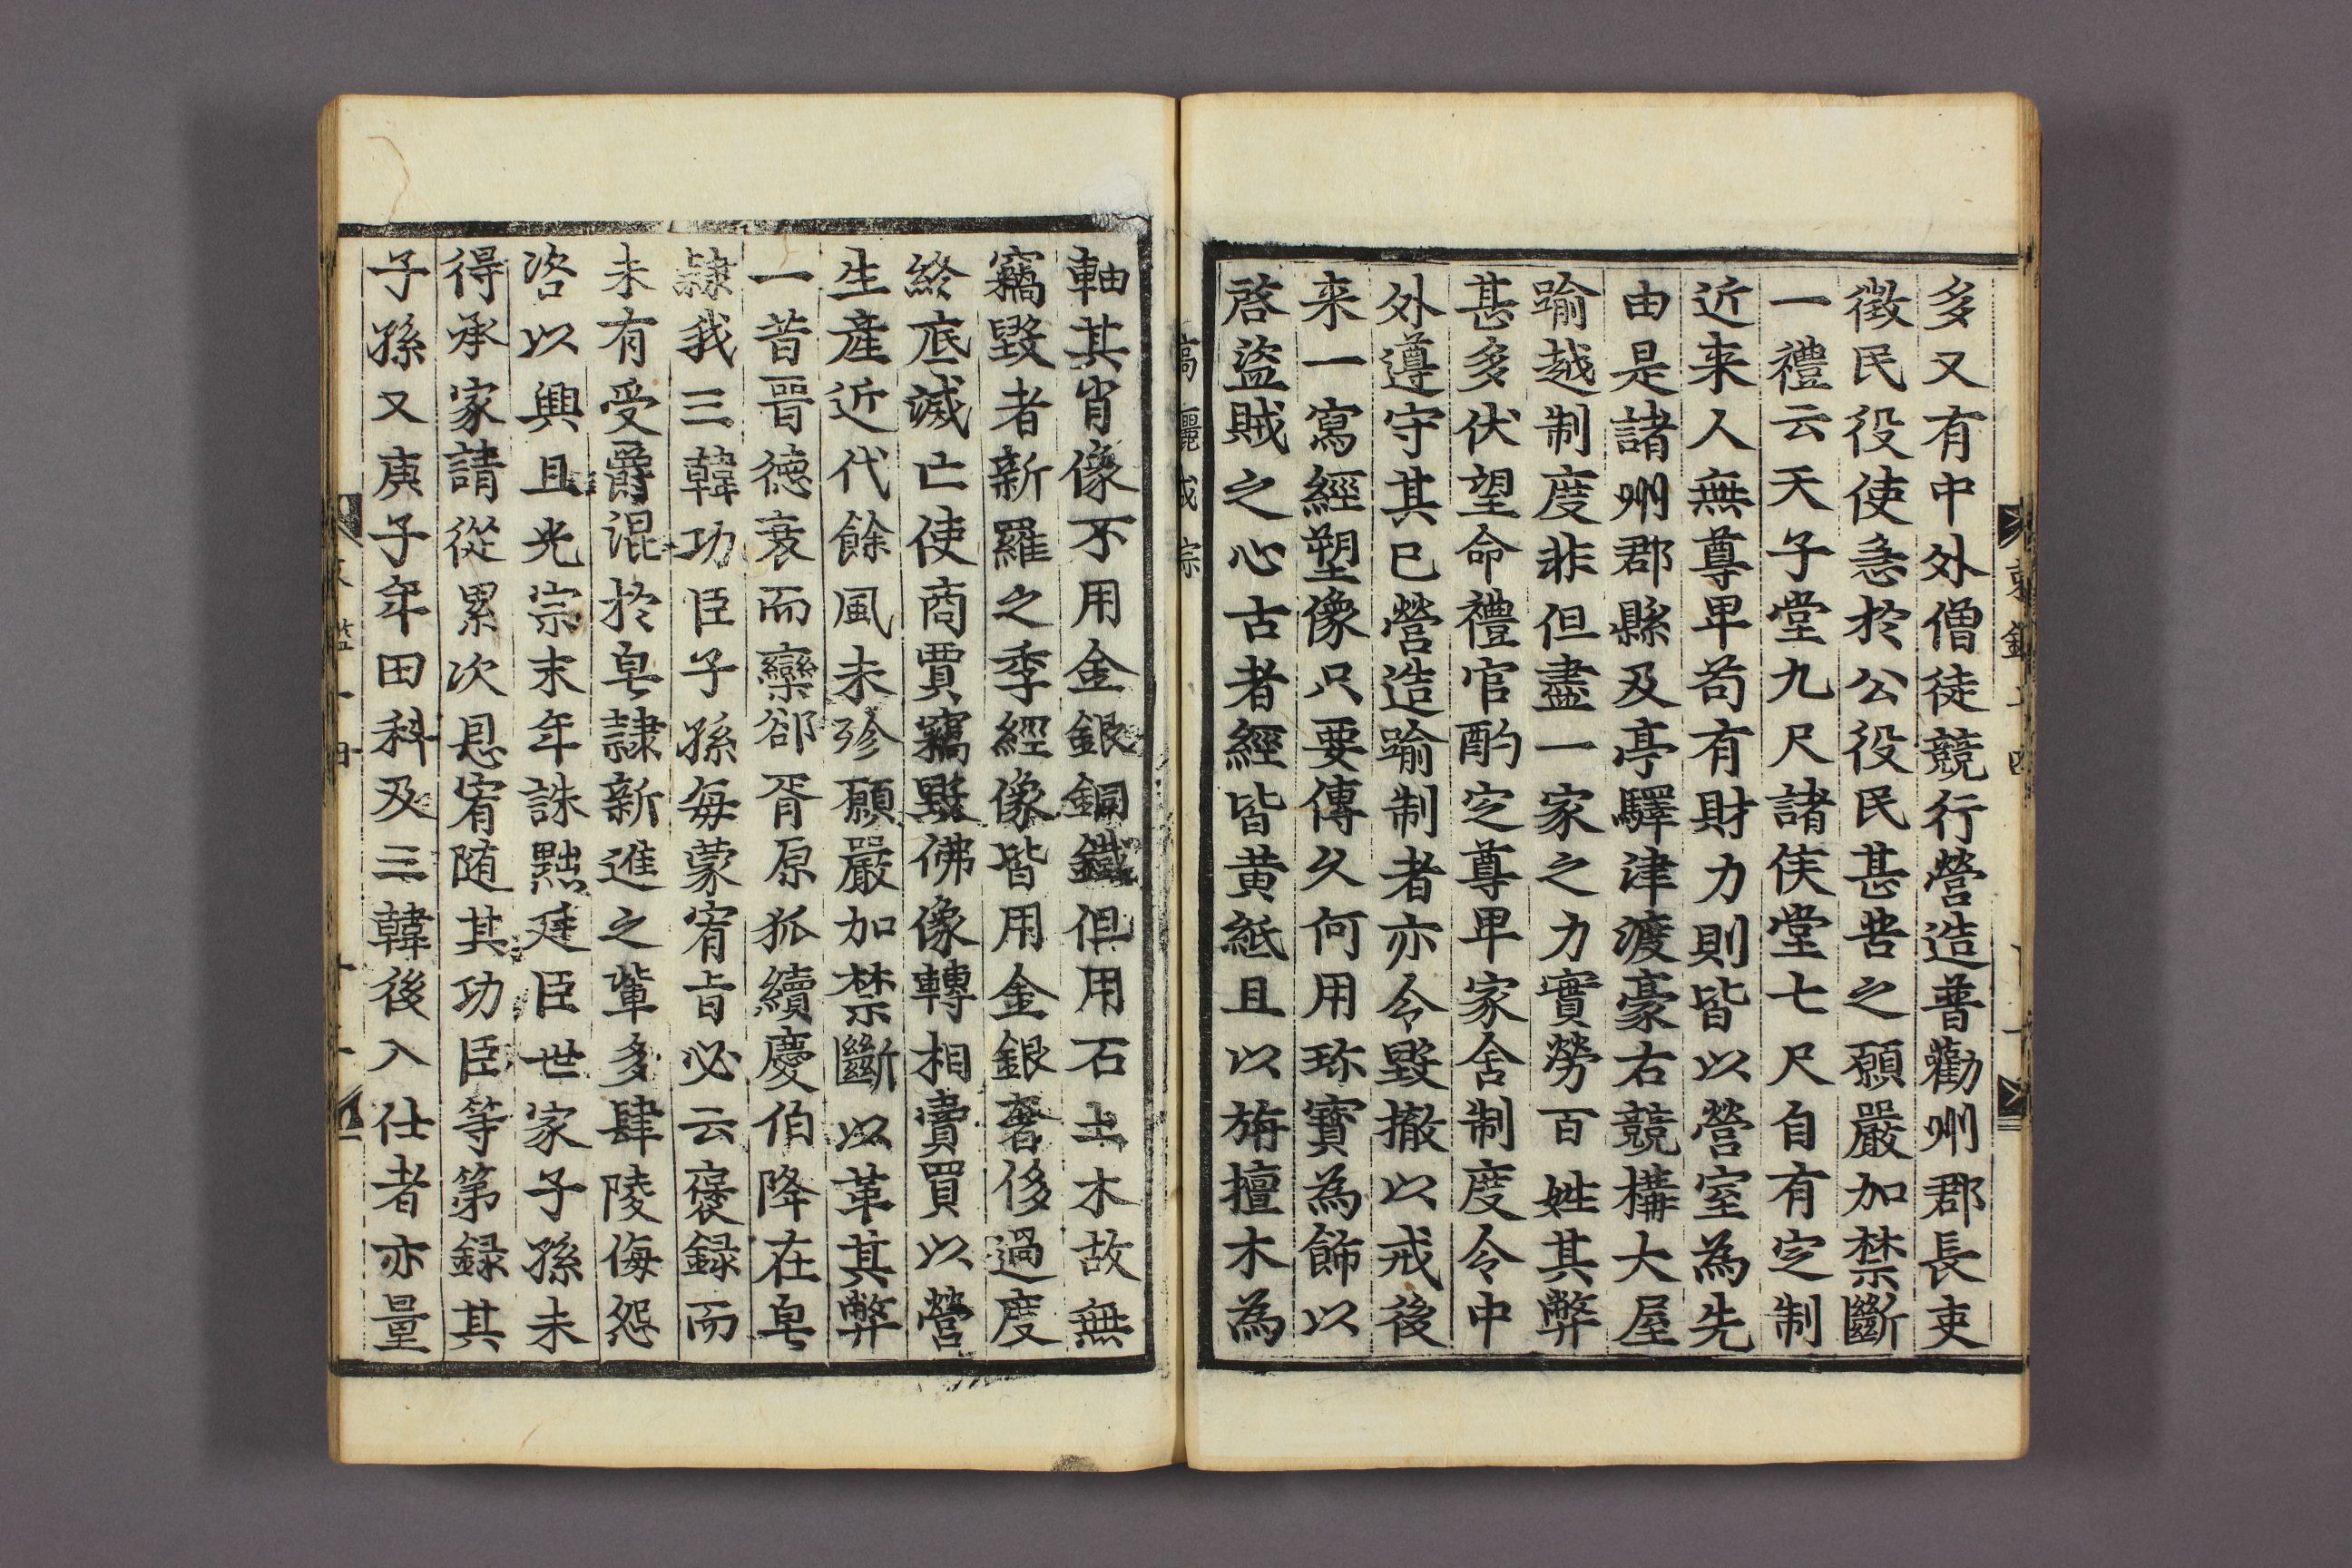 多又有中外僧徒競行營造普勸州郡長吏
徴民役使急於公役民甚苦之願嚴加禁斷
一禮云天子堂九尺諸侯堂七尺自有定制
近来人無尊卑苟有財力則皆以營室為先
由是諸州郡縣及亭驛津渡豪右競構大屋
踰越制度非但盡一家之力實勞百姓其弊
甚多伏望命禮官酌定尊卑家舍制度令中
外遵守其已營造踰制者亦令毀撤以戒後
来一寫經塑像只要傳久何用珎寶為飾以
啓盜賊之心古者經皆黄紙且以旃檀木為
高麗成宗
軸其肖像不用金銀銅鐵但用石土木故無
竊毀者新羅之季經像皆用金銀奢侈過度
終底滅亡使商賈竊毀佛像轉相賣買以營
生產近代餘風未殄願嚴加禁斷以革其弊
一昔晋德衰而欒郤胥原狐續慶伯降在皂
隷我三韓功臣子孫每蒙宥旨必云褒録而
未有受爵混於皂隷新進之輩多肆陵侮怨
咨以興且光宗末年誅黜廷臣世家子孫未
得承家請從累次恩宥随其功臣等第録其
子孫又庚子年田科及三韓後入仕者亦量